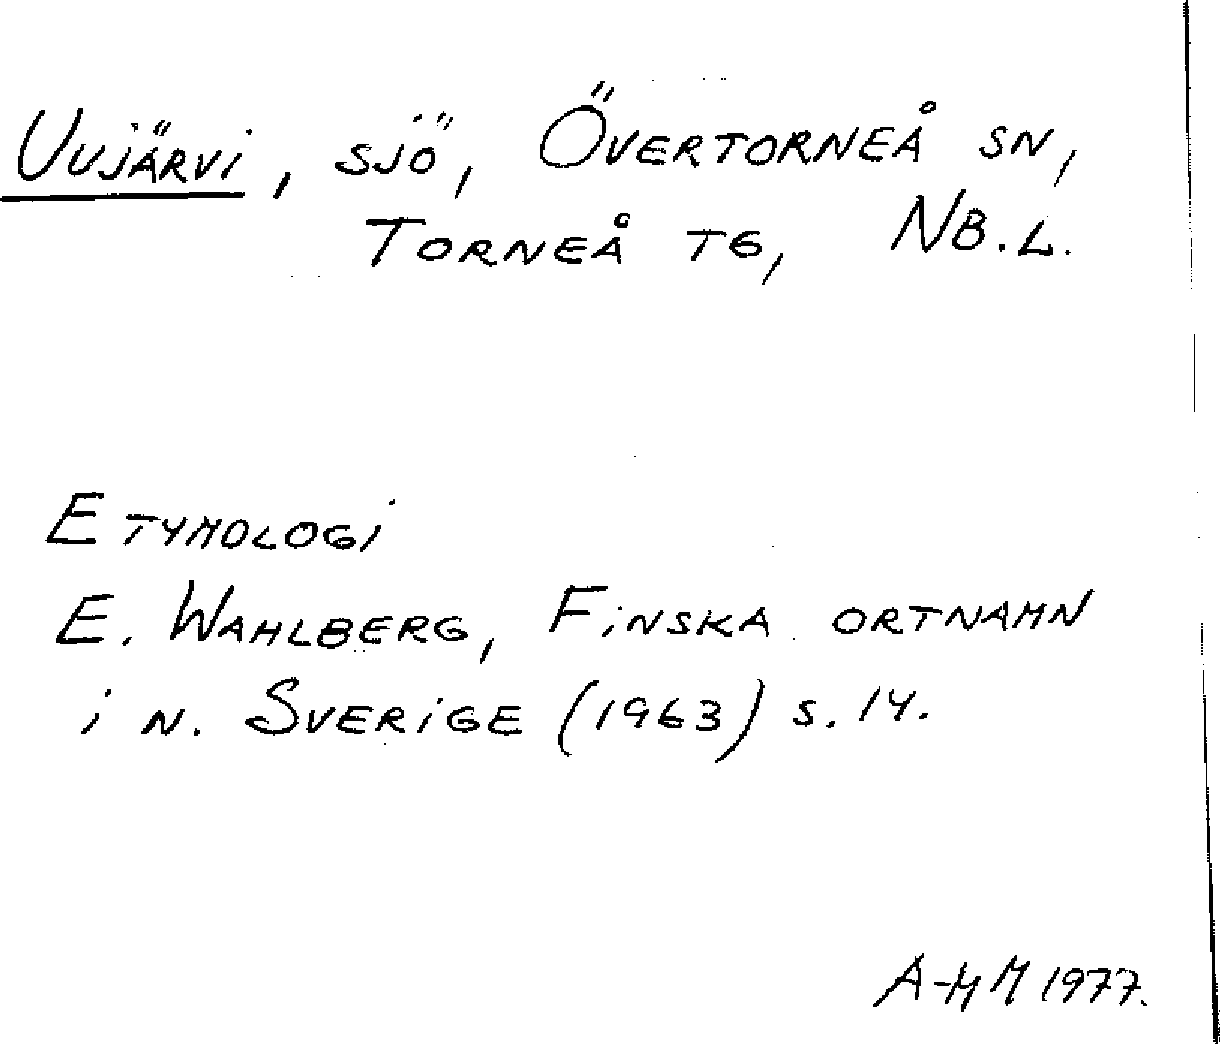 Uujärvi, sjö, Övertorneå sn,
Torneå tg, Nb.l.
Etymologi
E. Wahlberg, Finska ortnamn
i n. Sverige (1963) s. 14.
A-MM 1977.